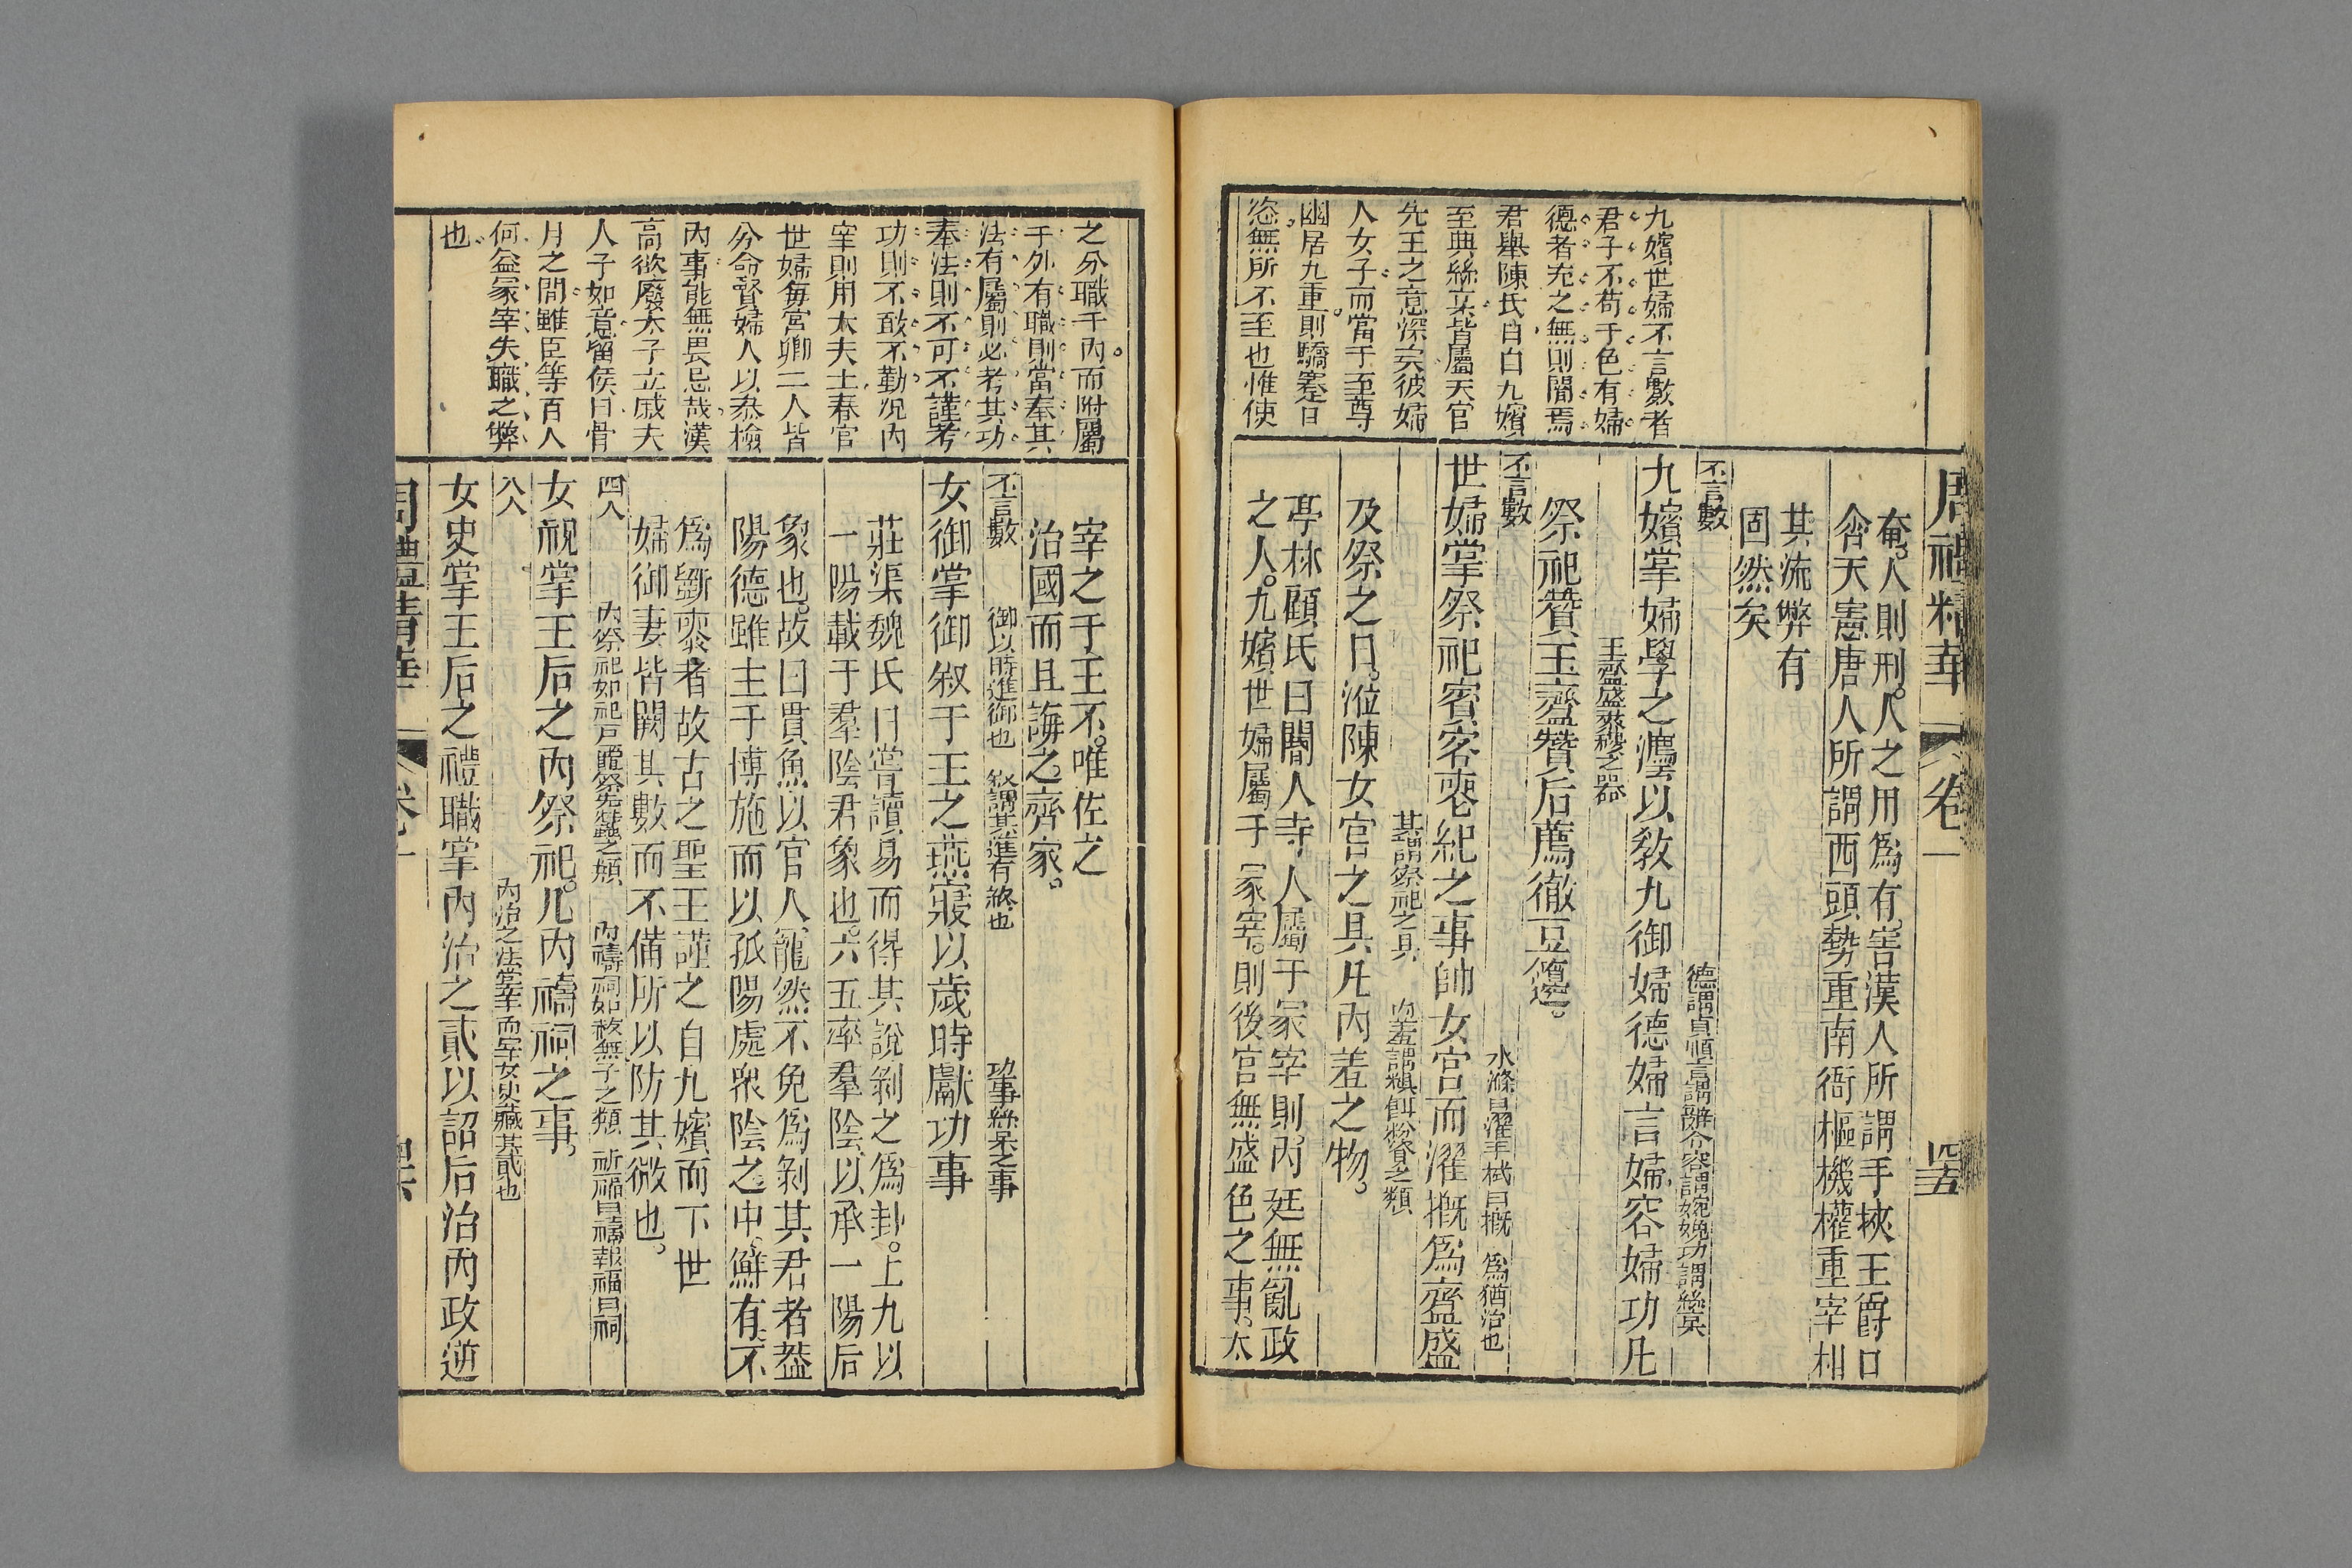 周禮精華
卷一
四五
九嬪世婦不言數者
君子不苟于色有婦
德者充之無則闕焉
君舉陳氏曰自九嬪
至典絲枲皆屬天官
先王之意深矣彼婦
人女子而當于至尊
幽居九重則驕蹇日
恣無所不至也惟使
奄人則刑人之用為有害漢人所謂手挾王爵口
含天憲唐人所謂西頭勢重南衙樞機權重宰相
其流弊有
固然矣
不言數
德謂貞順言謂辭令容謂婉娩功謂絲枲
九嬪掌婦學之灋以敎九御婦德婦言婦容婦功凡
玉齍盛黍稷之器
祭祀贊玉齍贊后薦徹豆籩
不言數
水滌曰濯手拭曰摡
為猶治也
世婦掌祭祀賓客喪紀之事帥女宮而濯摡為齍盛
其謂祭祀之具
內羞謂糗餌粉餈之類
及祭之日涖陳女宮之具凡內羞之物
亭林顧氏曰閽人寺人屬于冢宰則內廷無亂政
之人九嬪世婦屬于冢宰則後宮無盛色之事太
之分職于內而附屬
于外有職則當奉其
法有屬則必考其功
奉法則不可不謹考
功則不敢不勤况內
宰則用大夫士春官
世婦每宮卿二人皆
分命賢婦人以恭檢
內事能無畏忌哉漢
高欲廢太子立戚夫
人子如意留侯曰骨
月之間雖臣等百人
何益冢宰失職之弊
也
宰之于王不唯佐之
治國而且誨之齊家
不言數
御以時進御也
叙謂其進有終也
功事絲枲之事
女御掌御叙于王之燕寢以歲時獻功事
莊渠魏氏曰嘗讀易而得其說剝之為卦上九以
一陽載于羣陰君象也六五率羣陰以承一陽后
象也故曰貫魚以官人寵然不免為剝其君者葢
陽德雖主于博施而以孤陽處衆陰之中鮮有不
為斲喪者故古之聖王謹之自九嬪而下世
婦御妻皆闕其數而不備所以防其微也
四人
內祭祀如祀戶竈祭先蠶之類
內禱祠如祓無子之類
祈福曰禱報福曰祠
女祝掌王后之內祭祀凡內禱祠之事
八人
內治之法掌在內宰而女史藏其貳也
女史掌王后之禮職掌內治之貳以詔后治內政逆
周禮精華
卷一